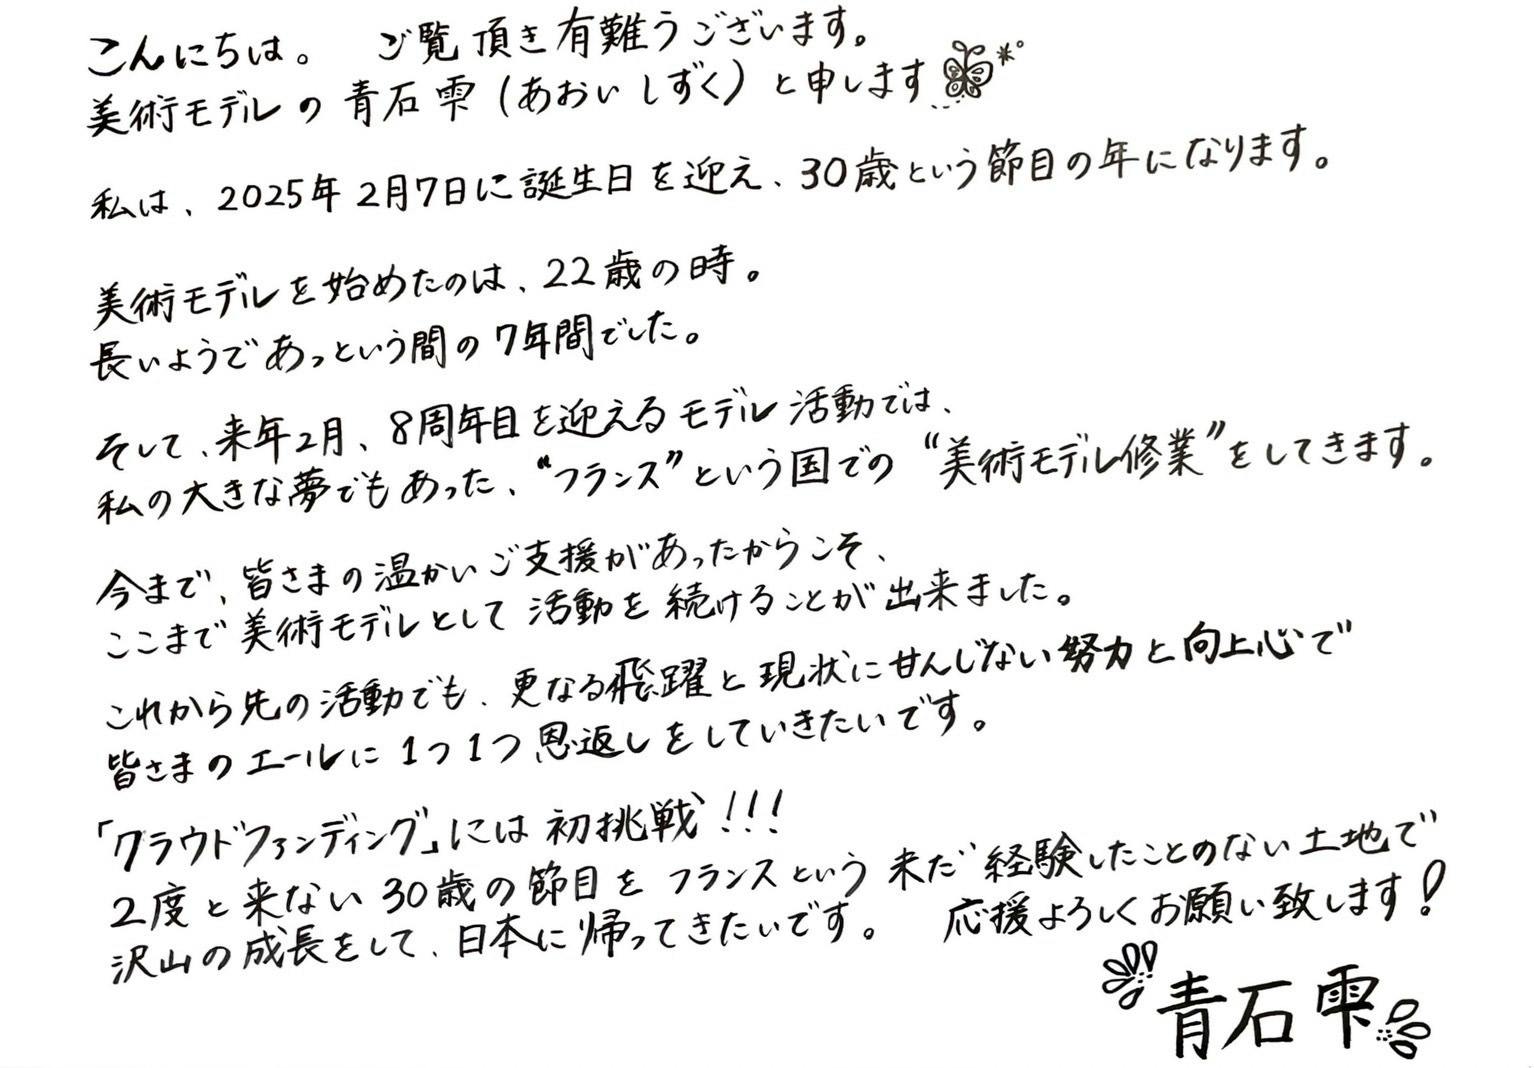 こんにちは。 ご覧頂き有難うございます。
美術モデルの青石雫(あおい しずく)と申します
私は、2025年2月7日に誕生日を迎え、30歳という節目の年になります。
美術モデルを始めたのは、22歳の時。
長いようであっという間の7年間でした。
そして、来年2月、8周年目を迎えるモデル活動では、
私の大きな夢でもあった、“フランス”という国での“美術モデル修業”をしてきます。
今まで、皆さまの温かいご支援があったからこそ、
ここまで美術モデルとして活動を続けることが出来ました。
これから先の活動でも、更なる飛躍と現状に甘んじない努力と向上心で
皆さまのエールに1つ1つ恩返しをしていきたいです。
「クラウドファンディング」には初挑戦!!!
2度と来ない30歳の節目をフランスという未だ経験したことのない土地で
沢山の成長をして、日本に帰ってきたいです。 応援よろしくお願い致します!
青石雫